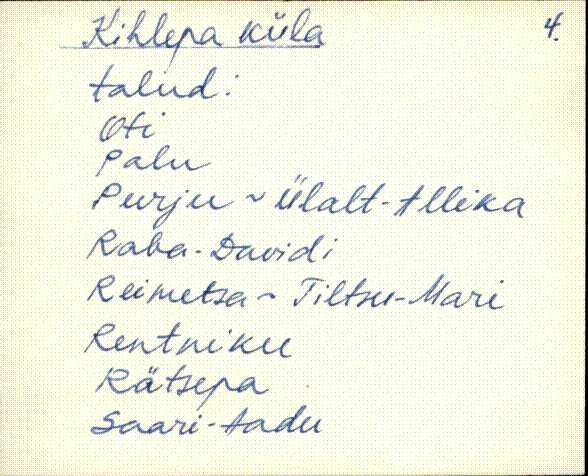 Kihlepa küla 4.
talud:
Oti
Palu
Purju ~ Ülalt-Allika
Raba-Davidi
Reimetsa ~ Tiltsu-Mari
Rentniku
Rätsepa
Saari-Aadu